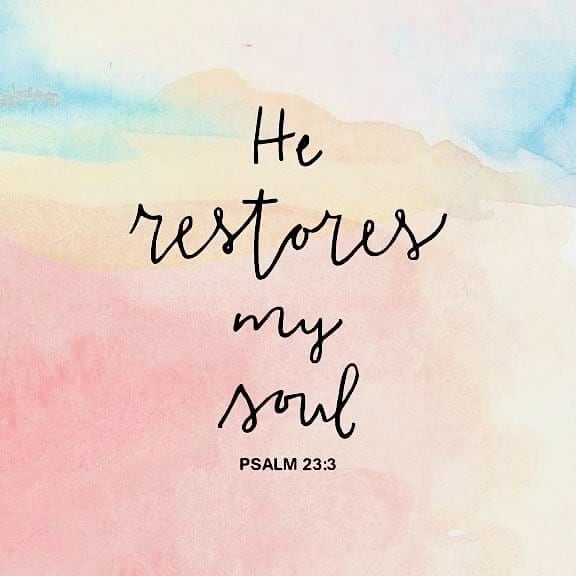 He
restores
my
soul
PSALM 23:3